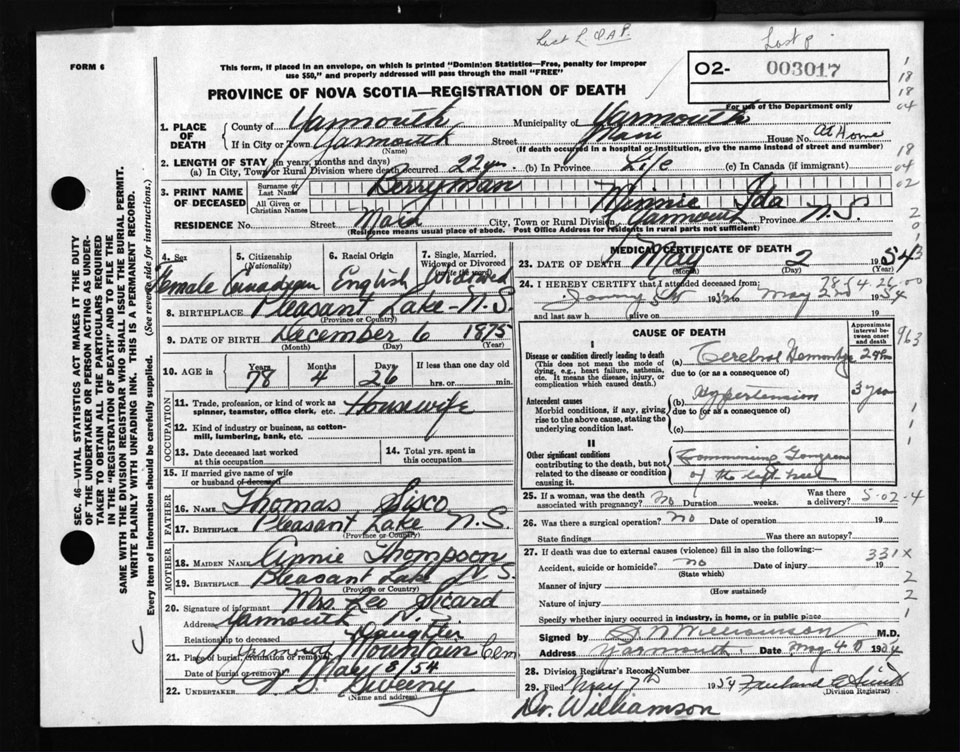 Last L. OAP.
Last p.
FORM 6
This form, if placed in an envelope, on which is printed "Dominion Statistics—Free, penalty for improper
use $50," and properly addressed will pass through the mail "FREE"
O2- 003017
For use of the Department only
PROVINCE OF NOVA SCOTIA—REGISTRATION OF DEATH
1. PLACE OF DEATH
County of Yarmouth Municipality of Yarmouth
If in City or Town Yarmouth Street Main House No. At Home
(Name) (If death occurred in a hospital or institution, give the name instead of street and number)
2. LENGTH OF STAY (in years, months and days)
(a) In City, Town or Rural Division where death occurred 22 yrs. (b) In Province Life (c) In Canada (if immigrant)
3. PRINT NAME OF DECEASED
Surname or Last Name Berryman
All Given or Christian Names Minnie Ida
RESIDENCE No. Street Main City, Town or Rural Division Yarmouth Province N.S.
(Residence means usual place of abode. Post Office Address for residents in rural parts not sufficient)
4. Sex 5. Citizenship (Nationality) 6. Racial Origin 7. Single, Married, Widowed or Divorced (write the word)
Female Canadian English Widowed
8. BIRTHPLACE Pleasant Lake - N.S.
(Province or Country)
9. DATE OF BIRTH December 6 1875
(Month) (Day) (Year)
10. AGE in Years Months Days If less than one day old
78 4 26 hrs. or min.
OCCUPATION
11. Trade, profession, or kind of work as Housewife
spinner, teamster, office clerk, etc.
12. Kind of industry or business, as cotton-
mill, lumbering, bank, etc.
13. Date deceased last worked at this occupation
14. Total yrs. spent in this occupation
15. If married give name of wife
or husband of deceased
FATHER
16. Name Thomas Sisco
17. Birthplace Pleasant Lake N.S.
(Province or Country)
MOTHER
18. MAIDEN NAME Annie Thompson
19. BIRTHPLACE Pleasant Lake N.S.
(Province or Country)
20. Signature of informant Mrs. Leo Sicard
Address Yarmouth N.S.
Relationship to deceased Daughter
21. Place of burial, cremation or removal Mountain Cem.
Date of burial or removal May 8/54
22. UNDERTAKER Sweeny
(Name and address)
MEDICAL CERTIFICATE OF DEATH
23. DATE OF DEATH May 2 1954
(Month) (Day) (Year)
24. I HEREBY CERTIFY that I attended deceased from:
19 to May 19 54
and last saw h alive on 19
CAUSE OF DEATH
Approximate interval between onset and death
I
Disease or condition directly leading to death
(This does not mean the mode of dying, e.g., heart failure, asthenia, etc. It means the disease, injury, or complication which caused death.)
(a) Cerebral Hemorrhage
due to (or as a consequence of)
Antecedent causes
Morbid conditions, if any, giving rise to the above cause, stating the underlying condition last.
(b) Hypertension 3 years
due to (or as a consequence of)
(c)
II
Other significant conditions
contributing to the death, but not related to the disease or condition causing it.
Commencing Gangrene
of the left heel
25. If a woman, was the death associated with pregnancy? No Duration weeks. Was there a delivery? 5-02-4
26. Was there a surgical operation? no Date of operation 19
State findings Was there an autopsy?
27. If death was due to external causes (violence) fill in also the following:—
331X
Accident, suicide or homicide? no Date of injury 19
(State which)
Manner of injury
(How sustained)
Nature of injury
Specify whether injury occurred in industry, in home, or in public place
Signed by Williamson M.D.
Address Yarmouth Date May 4 1954
28. Division Registrar's Record Number
29. Filed May 7th 1954
(Division Registrar)
Dr. Williamson
SEC. 46—VITAL STATISTICS ACT MAKES IT THE DUTY
OF THE UNDERTAKER OR PERSON ACTING AS UNDER-
TAKER TO OBTAIN ALL THE PARTICULARS REQUIRED
IN THE "REGISTRATION OF DEATH" AND TO FILE THE
SAME WITH THE DIVISION REGISTRAR WHO SHALL ISSUE THE BURIAL PERMIT.
WRITE PLAINLY WITH UNFADING INK. THIS IS A PERMANENT RECORD.
Every item of information should be carefully supplied. (See reverse side for instructions.)
1
18
18
04
18
04
02
2
0
1
3
963
1
1
1
2
2
1